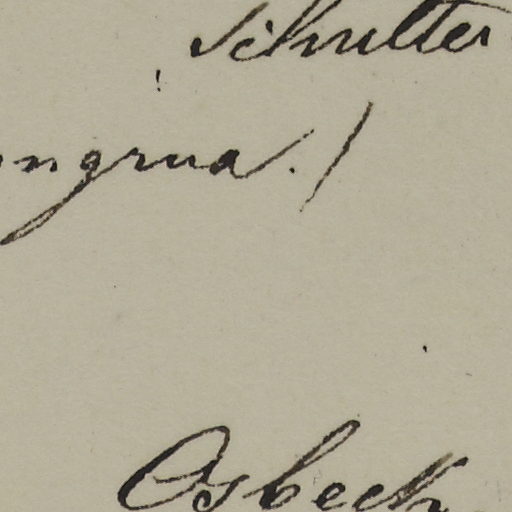 Schulter
ngrua./
Osbeck